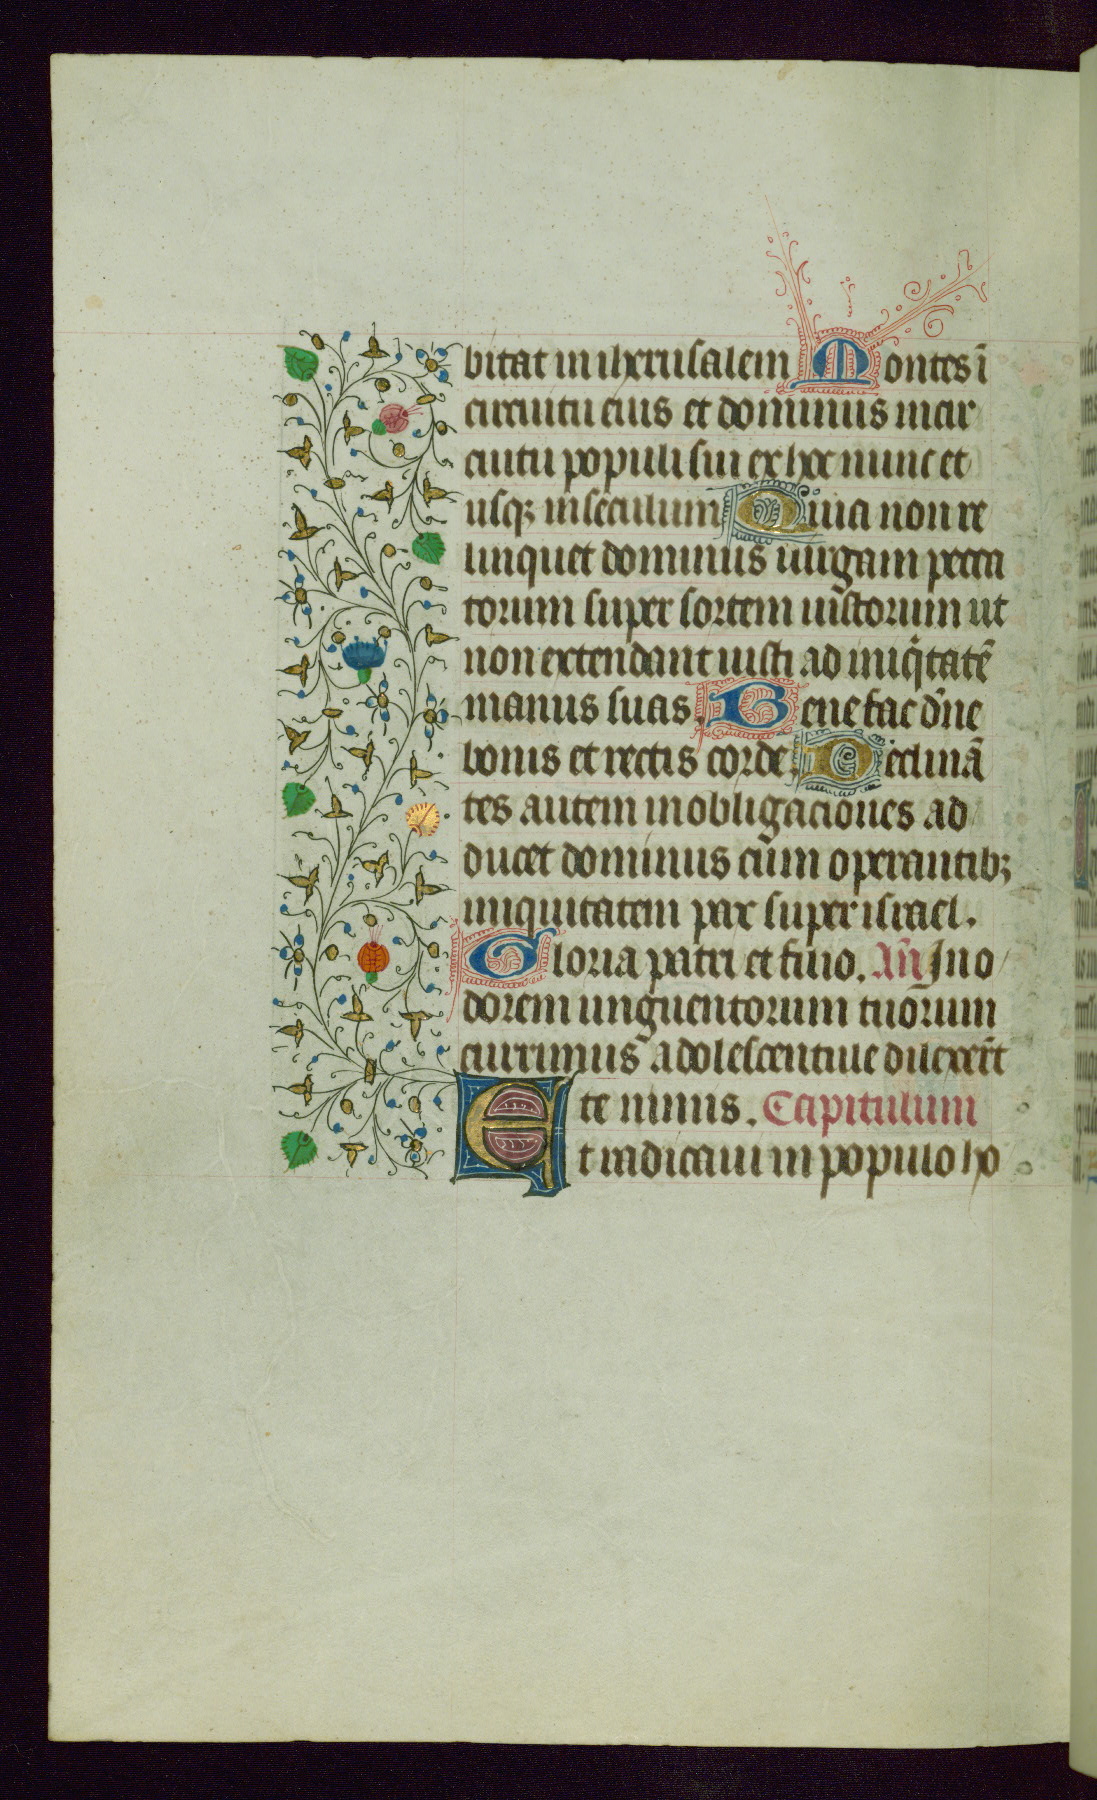 bitat in iherusalem Montes ī
circuitu eius et dominus in cir
cuitu populi sui ex hoc nunc et
usqꝫ in seculum Quia non re
linquet dominus uirgam pecca
torum super sortem iustorum ut
non extendant iusti ad iniq̄tatē
manus suas. Benefac dn̄e
bonis et rectis corde. Declinā
tes autem in obligaciones ad
ducet dominus cūm operantibꝫ
iniquitatem pax super israel.
Gloria patri et filio. An̄ In o
dorem unguentorum tuorum
currimus adolescentule dilexer̄t
te nimis. Capitulum
Et radicaui in populo ho